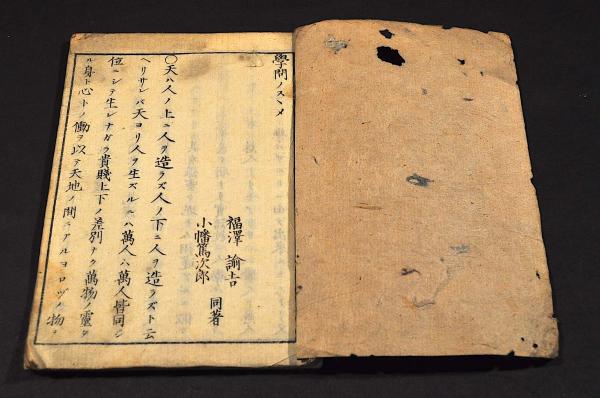 學問ノスヽメ
福澤諭吉
小幡篤次郎 同著
〇天ハ人ノ上ニ人ヲ造ラズ人ノ下ニ人ヲ造ラズト云
ヘリサレバ天ヨリ人ヲ生ズルニハ萬人ハ萬人皆同ジ
位ニシテ生レナガラ貴賤上下ノ差別ナク萬物ノ靈タ
ル身ト心トノ働ヲ以テ天地ノ間ニアルヨロヅノ物ヲ